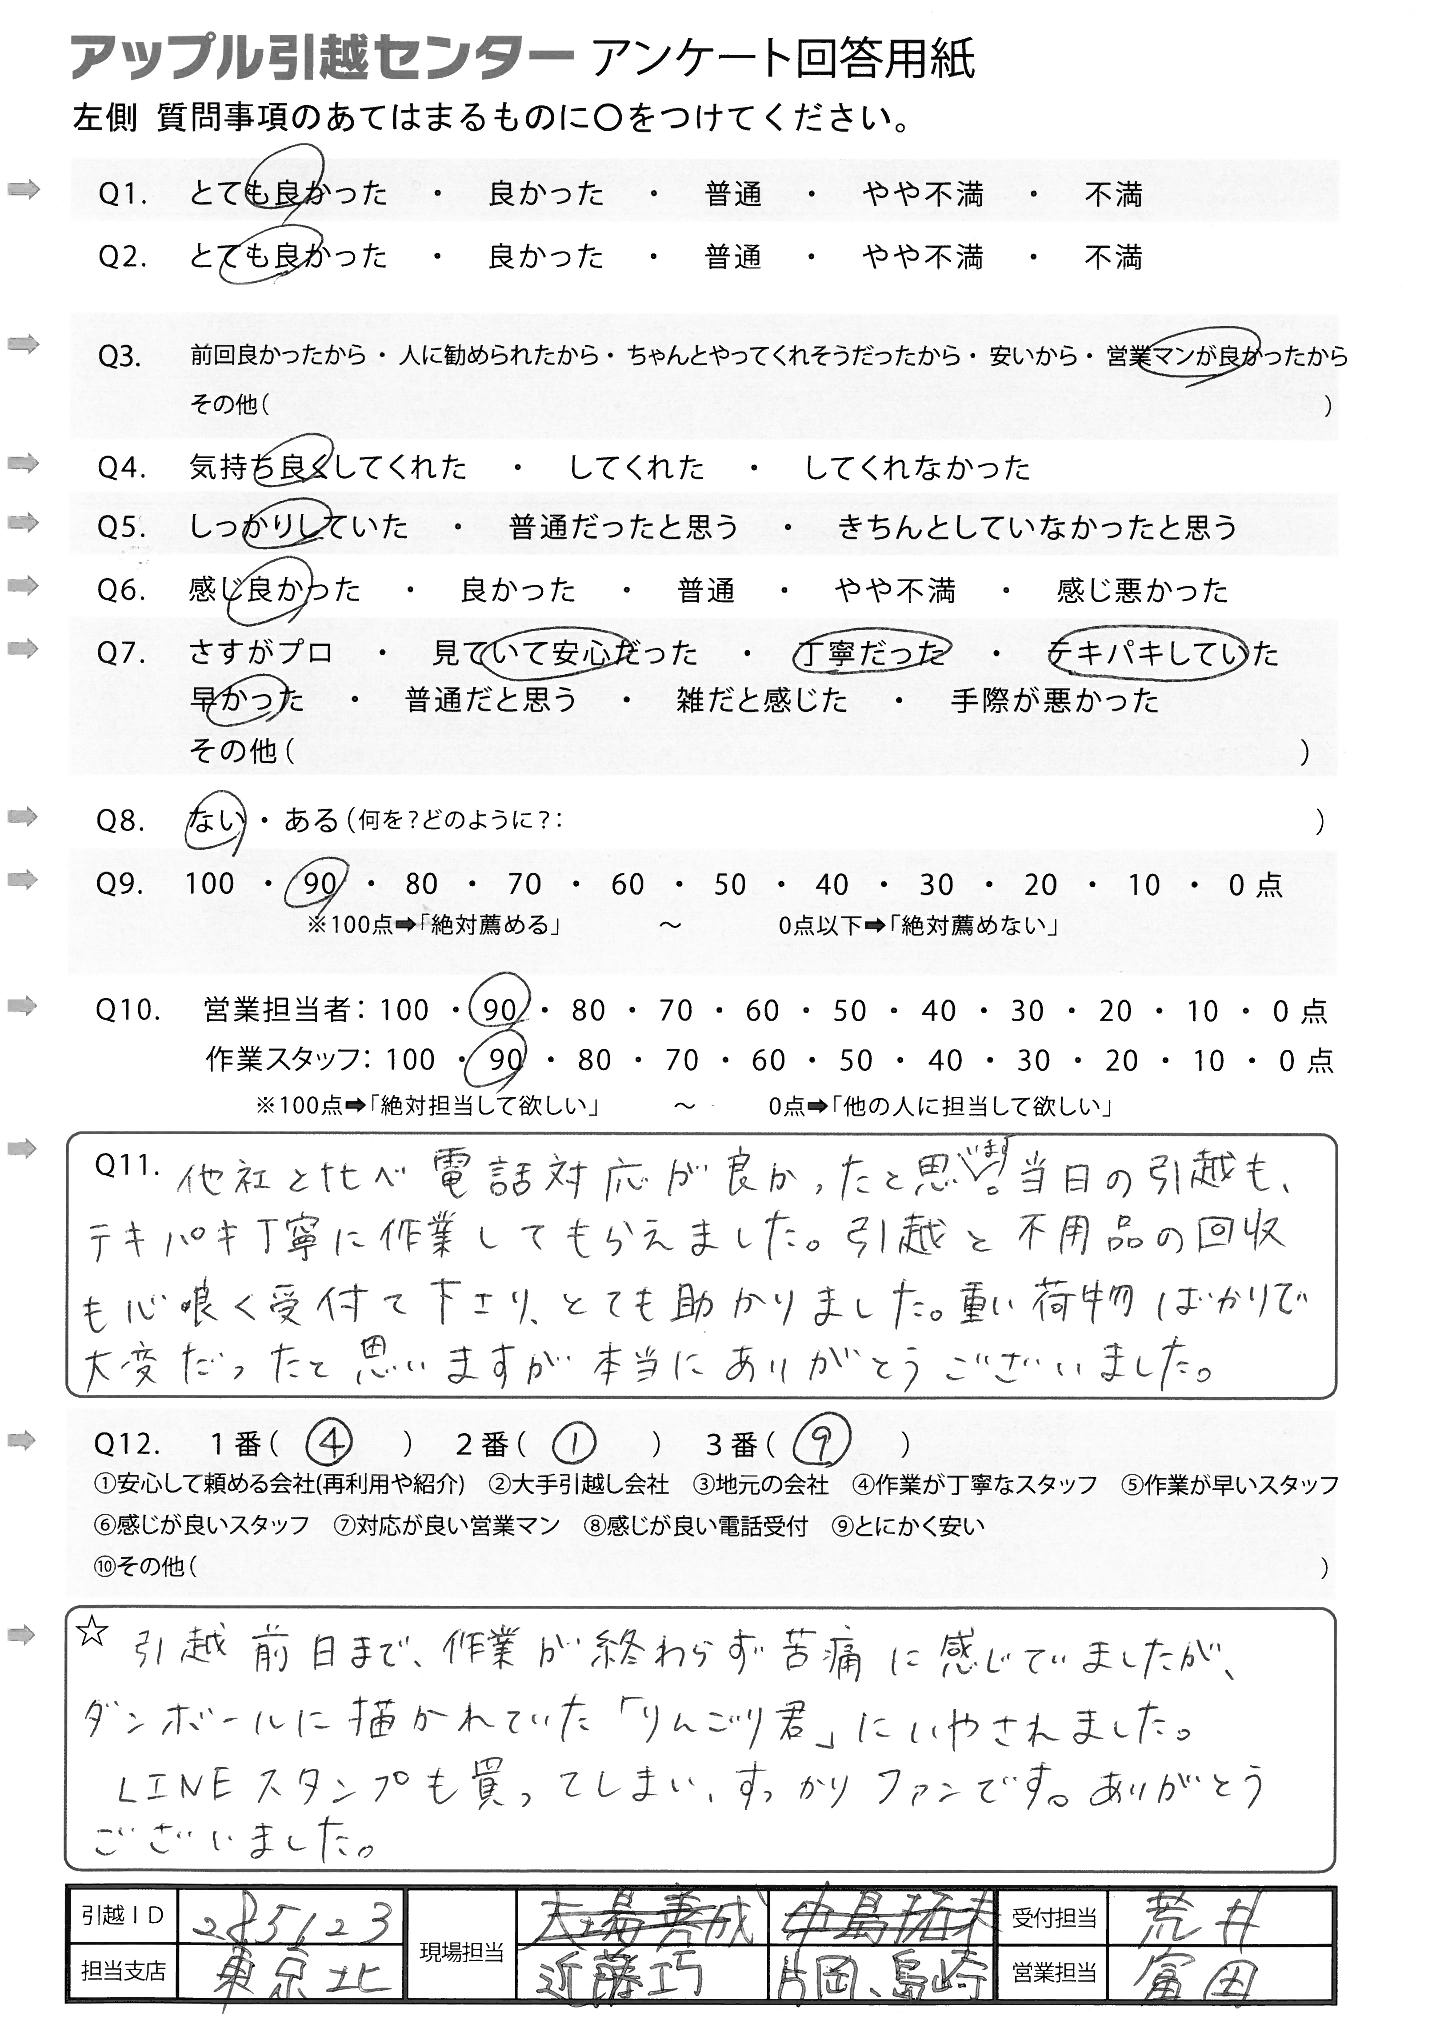 アップル引越センター アンケート回答用紙
左側 質問事項のあてはまるものに〇をつけてください。
Q1. とても良かった ・ 良かった ・ 普通 ・ やや不満 ・ 不満
Q2. とても良かった ・ 良かった ・ 普通 ・ やや不満 ・ 不満
Q3. 前回良かったから・ 人に勧められたから・ ちゃんとやってくれそうだったから・ 安いから・ 営業マンが良かったから
その他( )
Q4. 気持ち良くしてくれた ・ してくれた ・ してくれなかった
Q5. しっかりしていた ・ 普通だったと思う ・ きちんとしていなかったと思う
Q6. 感じ良かった ・ 良かった ・ 普通 ・ やや不満 ・ 感じ悪かった
Q7. さすがプロ ・ 見ていて安心だった ・ 丁寧だった ・ テキパキしていた
早かった ・ 普通だと思う ・ 雑だと感じた ・ 手際が悪かった
その他( )
Q8. ない・ある(何を?どのように?: )
Q9. 100 ・ 90 ・ 80 ・ 70 ・ 60 ・ 50 ・ 40 ・ 30 ・ 20 ・ 10 ・ 0 点
※100点➡「絶対薦める」 ～ 0点以下➡「絶対薦めない」
Q10. 営業担当者: 100 ・ 90 ・ 80 ・ 70 ・ 60 ・ 50 ・ 40 ・ 30 ・ 20 ・ 10 ・ 0 点
作業スタッフ: 100 ・ 90 ・ 80 ・ 70 ・ 60 ・ 50 ・ 40 ・ 30 ・ 20 ・ 10 ・ 0 点
※100点➡「絶対担当して欲しい」 ～ 0点➡「他の人に担当して欲しい」
Q11. 他社と比べ電話対応が良かったと思います。当日の引越も、
テキパキ丁寧に作業してもらえました。引越と不用品の回収
も心良く受付て下さり、とても助かりました。重い荷物ばかりで
大変だったと思いますが本当にありがとうございました。
Q12. 1番( ④ ) 2番( ① ) 3番( ⑨ )
①安心して頼める会社(再利用や紹介) ②大手引越し会社 ③地元の会社 ④作業が丁寧なスタッフ ⑤作業が早いスタッフ
⑥感じが良いスタッフ ⑦対応が良い営業マン ⑧感じが良い電話受付 ⑨とにかく安い
⑩その他( )
☆ 引越前日まで、作業が終わらず苦痛に感じていましたが、
ダンボールに描かれていた「りんごり君」にいやされました。
LINEスタンプも買ってしまい、すっかりファンです。ありがとう
ございました。
引越ID 285123 現場担当 大場善成 中島拓未 受付担当 荒井
担当支店 東京北 近藤巧 片岡、島崎 営業担当 富田